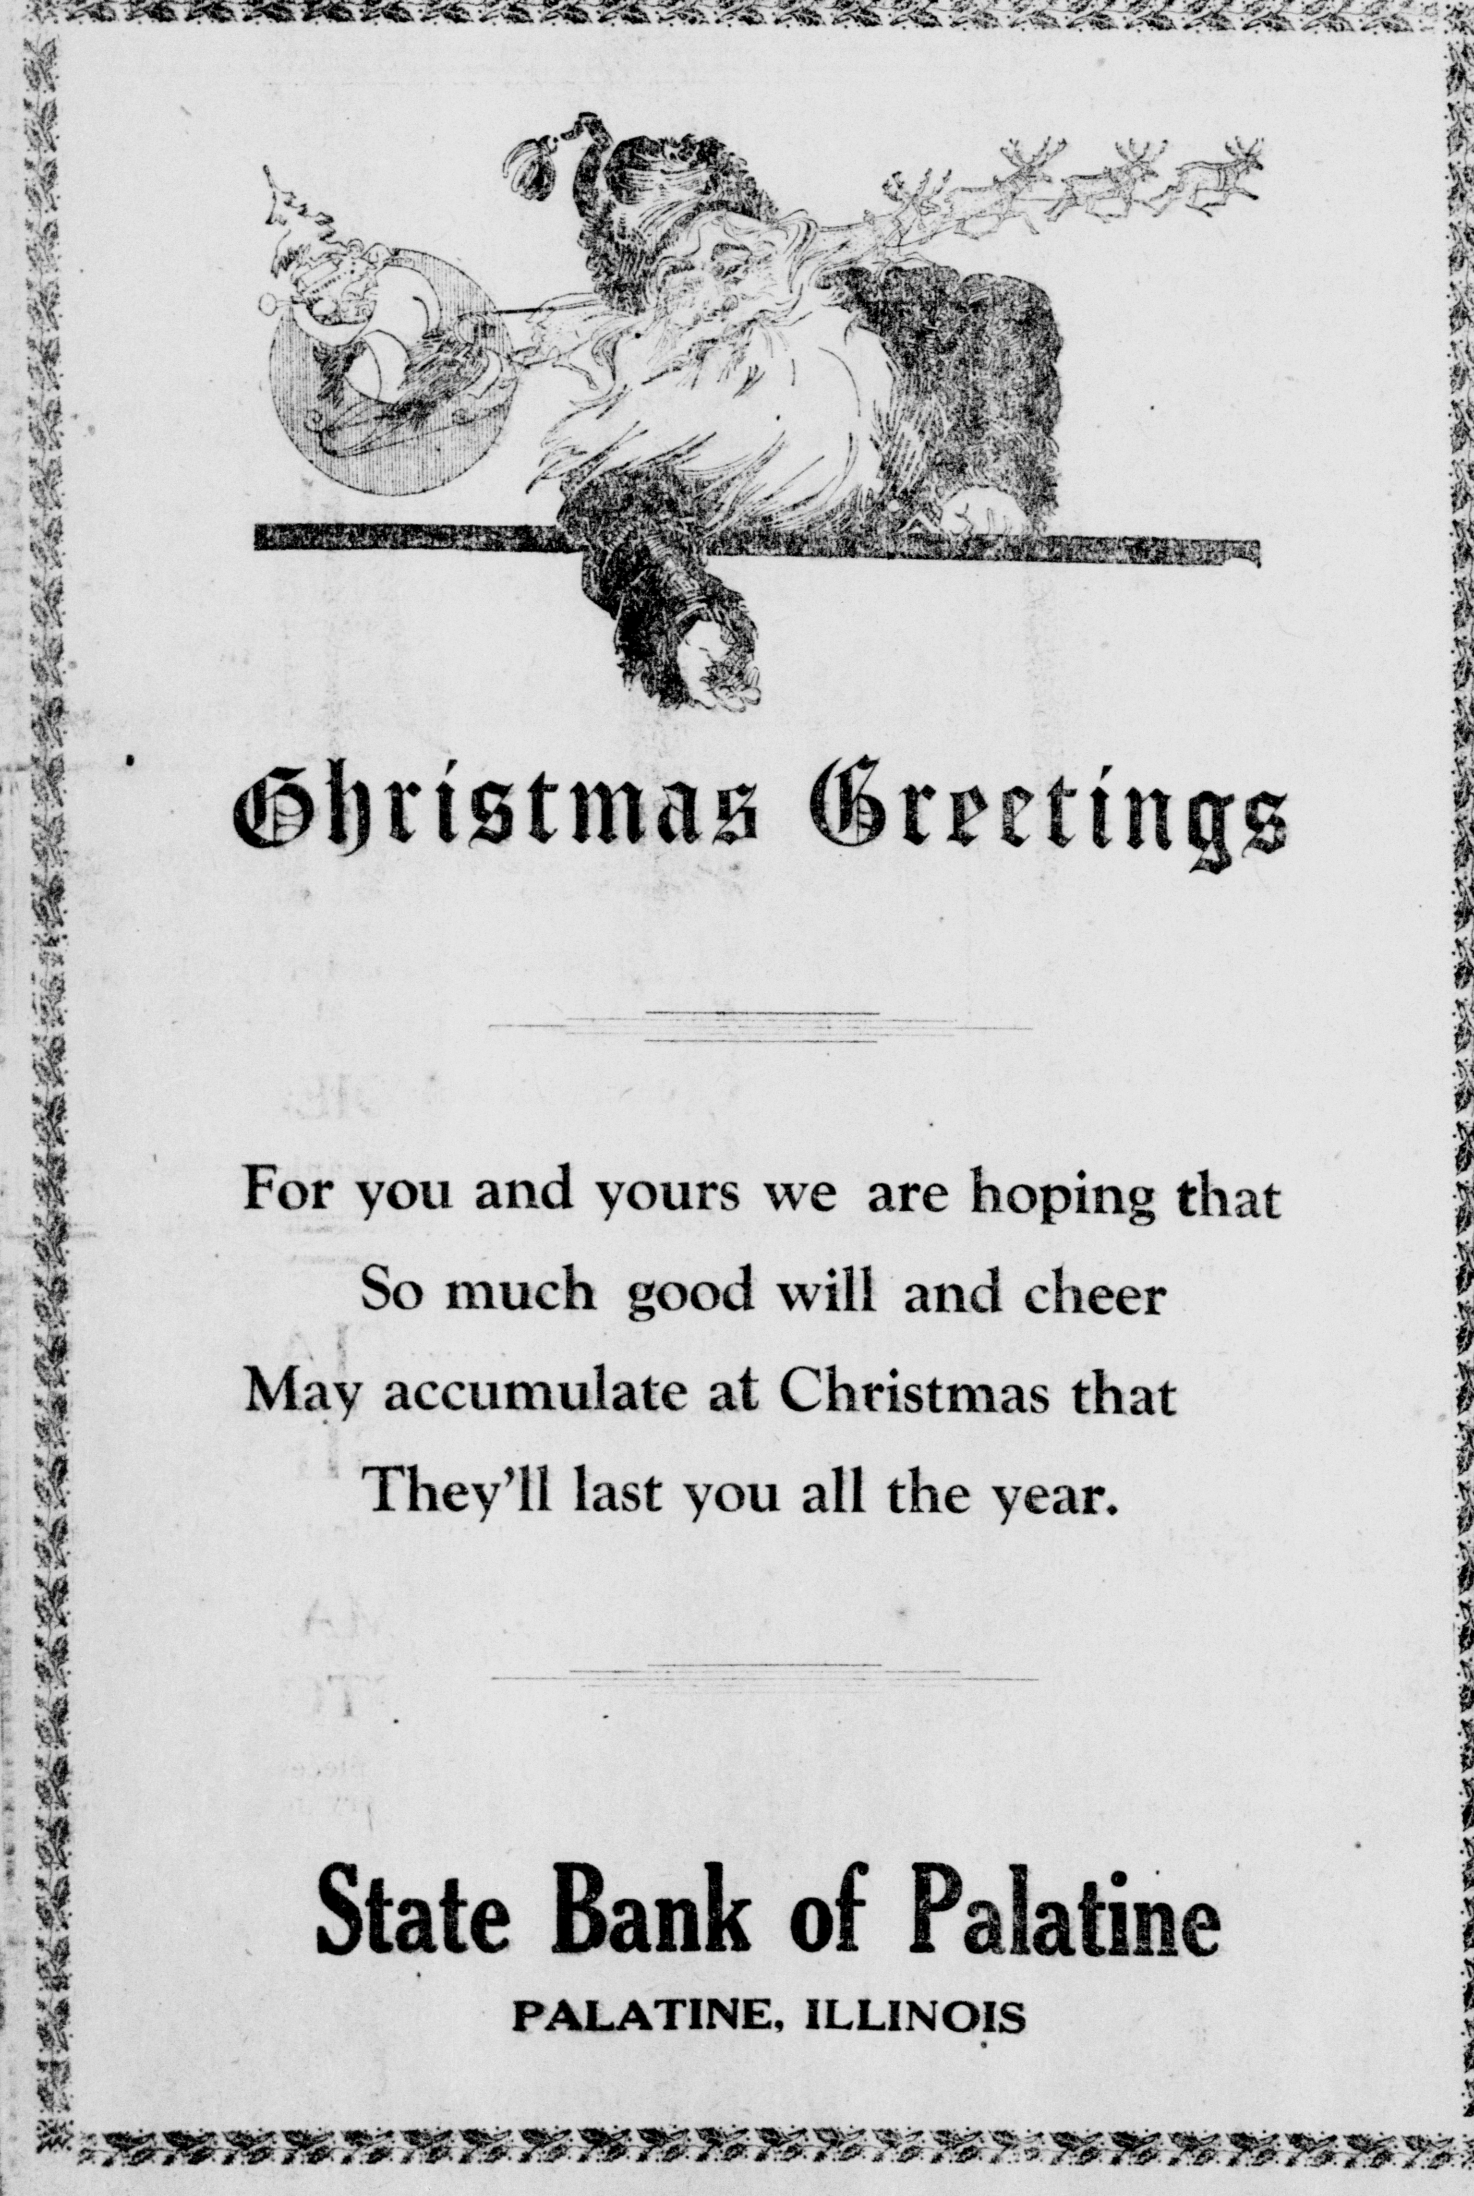 Christmas Greetings
For you and yours we are hoping that
So much good will and cheer
May accumulate at Christmas that
They'll last you all the year.
State Bank of Palatine
PALATINE, ILLINOIS